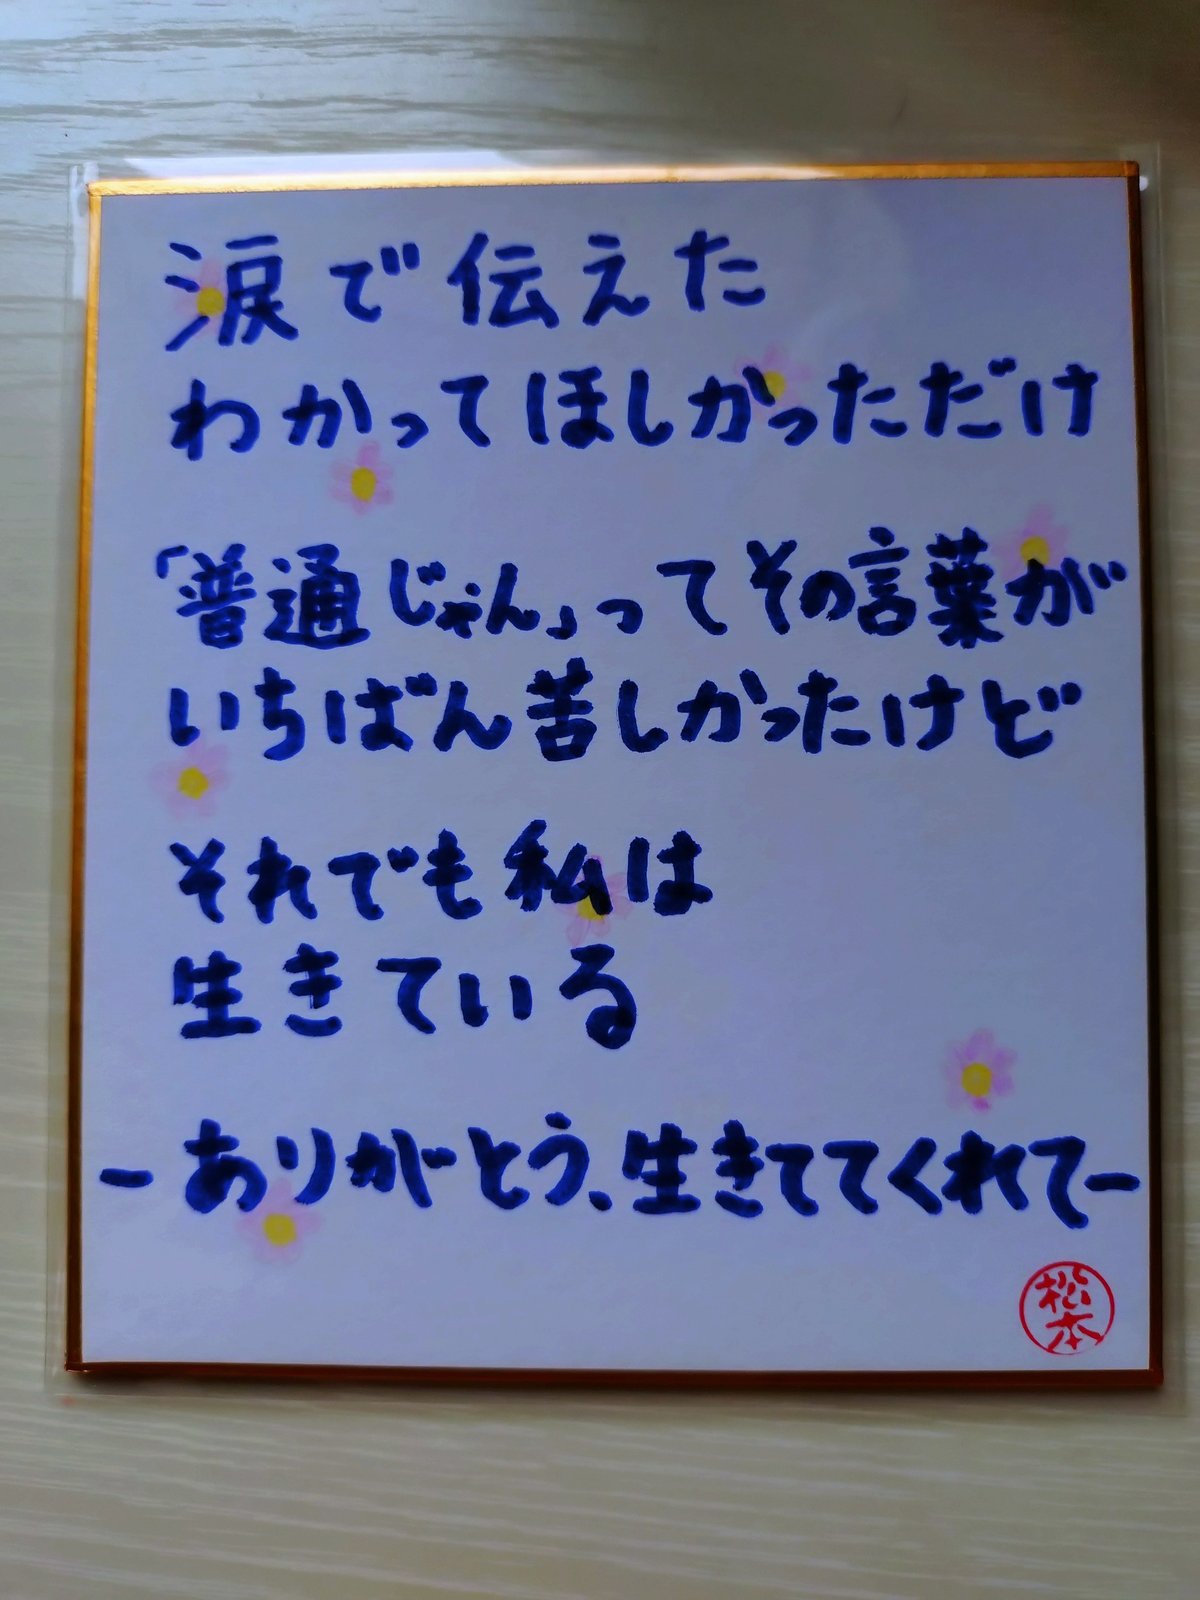 涙で伝えた
わかってほしかっただけ
「普通じゃん」ってその言葉が
いちばん苦しかったけど
それでも私は
生きている
－ありがとう、生きててくれて－
松本